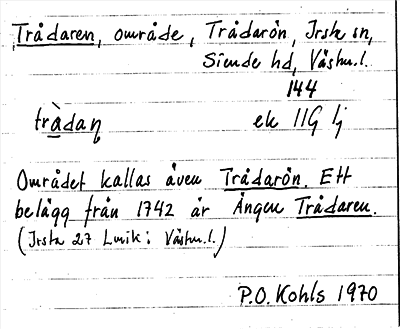 Trådaren, område, Trådarön, Irsta sn,
Siende hd, Västm.l.
144
trå̀daṇ ek 11G lj
Området kallas även Trådarön. Ett
belägg från 1742 är Ängen Trådaren.
(Irsta 27 Lmk: Västm.l.)
P.O. Kohls 1970